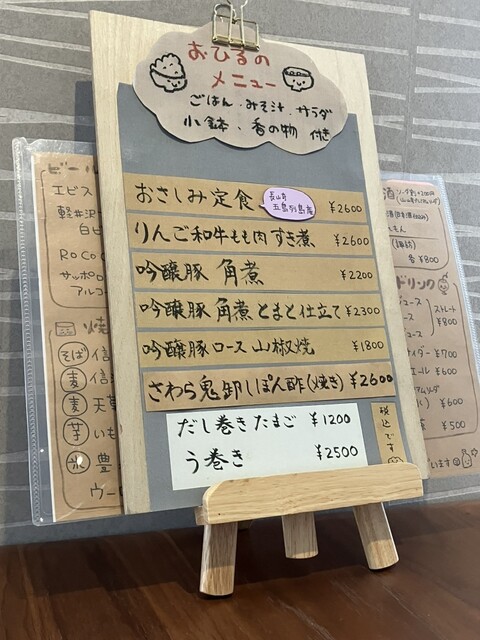 おひるの
メニュー
ごはん・みそ汁・サラダ
小鉢、香の物 付き
おさしみ定食 長崎 五島列島産 ¥2600
りんご和牛もも肉すき煮 ¥2600
吟醸豚 角煮 ¥2200
吟醸豚 角煮 とまと仕立て ¥2300
吟醸豚ロース 山椒焼 ¥1800
さわら鬼卸しぽん酢(焼き) ¥2600
だし巻きたまご ¥1200
う巻き ¥2500
税込です
ビール
エビス
軽井沢
白ビ
サッポロ
アルコー
焼
そば 信
麦 信
麦 天草
芋 いも
米 豊
ウー
酒
¥800
ドリンク
ジュース ストレート
ース ¥800
イダー ¥700
エール ¥600
¥600
茶 ¥500
います